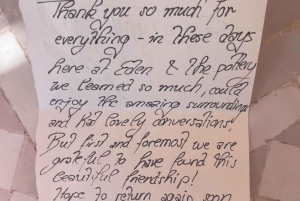 Thank you so much for
everything - in these days
here at Eden & the pottery
we learned so much, could
enjoy the amazing surrounding
and had lovely conversations!
But first and foremost we are
grateful to have found this
beautiful friendship!
Hope to return again soon